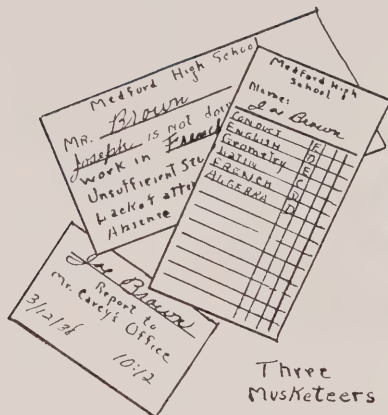 Medford High School
MR. Brown
Joseph is not doi
work in French
Unsufficient Stu
Lack of atte
Absence
Medford High
School
Name:
Joe Brown
CONDUCT F
ENGLISH D
Geometry E
Latin C
FRENCH D
ALGEBRA D
Joe Brown
Report to
Mr. Carey's Office
3/12/36 10:12
Three
Musketeers